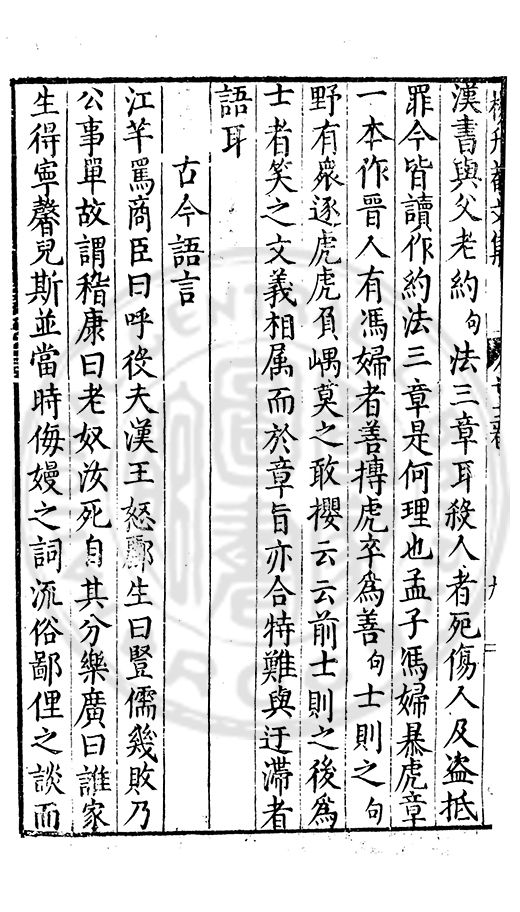 漢書與父老約句法三章耳殺人者死傷人及盗抵
罪今皆讀作約法三章是何理也孟子馮婦暴虎章
一本作晉人有馮婦者善搏虎卒為善句士則之句
野有衆逐虎虎負嵎莫之敢攖云云前士則之後為
士者笑之文義相属而於章旨亦合特難與迂滯者
語耳
古今語言
江羋罵商臣曰呼役夫漢王怒酈生曰豎儒幾敗乃
公事單故謂稽康曰老奴汝死自其分樂廣曰誰家
生得寧馨兒斯並當時侮嫚之詞流俗鄙俚之談而